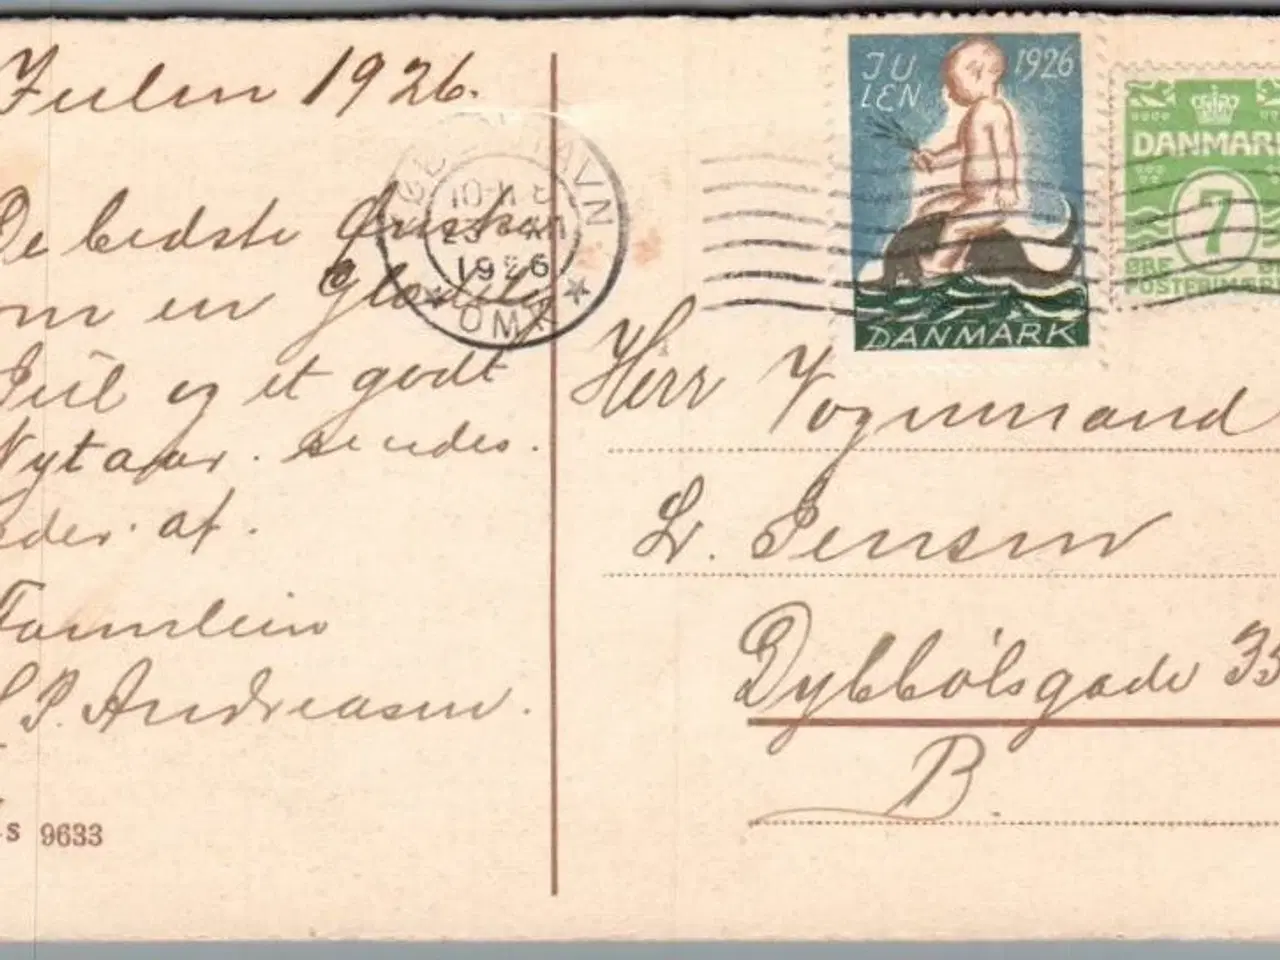 Julen 1926.
De bedste Ønsker
om en Glædelig
Juul og et godt
Nytaar. sendes.
eder. af.
Familien
P. Andreasen.
S 9633
1926
OMK
JU
LEN
1926
DANMARK
DANMARK
7
ØRE
POSTFRIMÆRKE
Herr Vognmand
Jensen
Dybbølsgade 35
B.